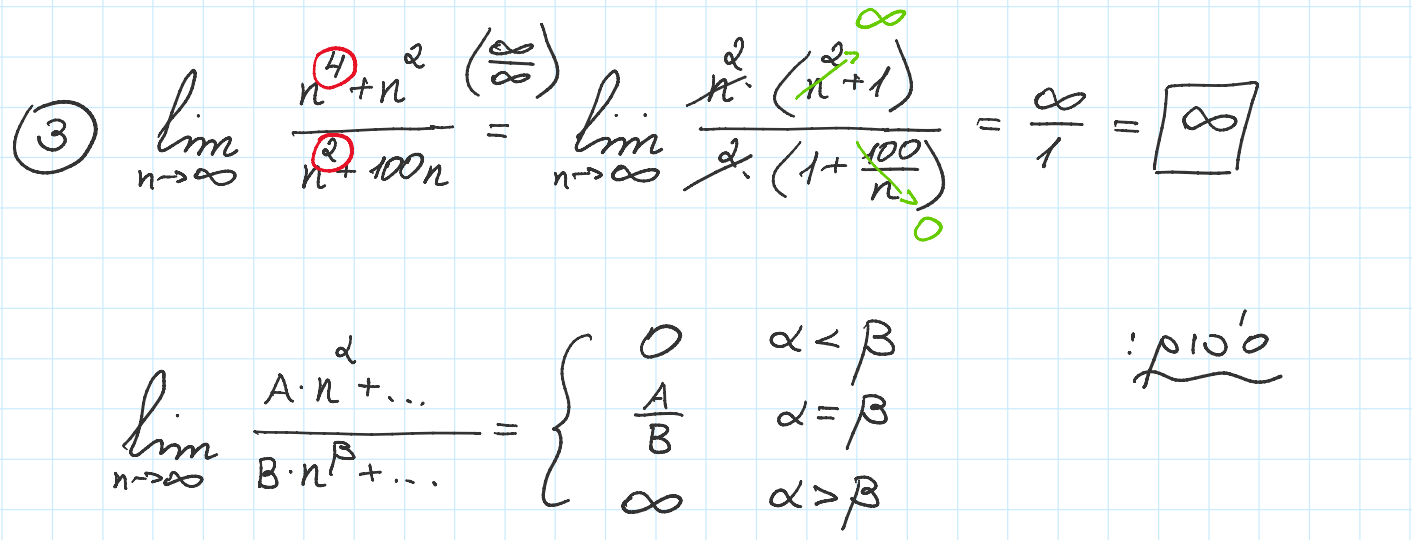 ③ lim n→∞ (n⁴ + n²)/(n² + 100n) (∞/∞) = lim n→∞ (n² · (n² + 1))/(n² · (1 + 100/n)) = ∞/1 = ∞
∞
0
סיכום:
lim n→∞ (A · n^α + ...)/(B · n^β + ...) = { 0 α < β
A/B α = β
∞ α > β